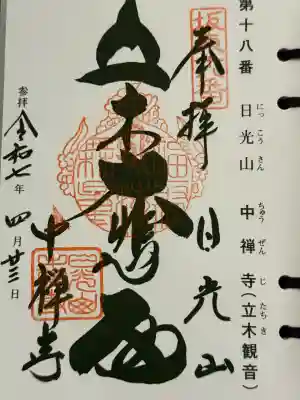 第十八番 日光山 中禅寺(立木観音)
にっこうさん ちゅうぜんじ たちき
奉拝 日光山
立木大悲殿
中禅寺
参拝 令和七年 四月廿三日